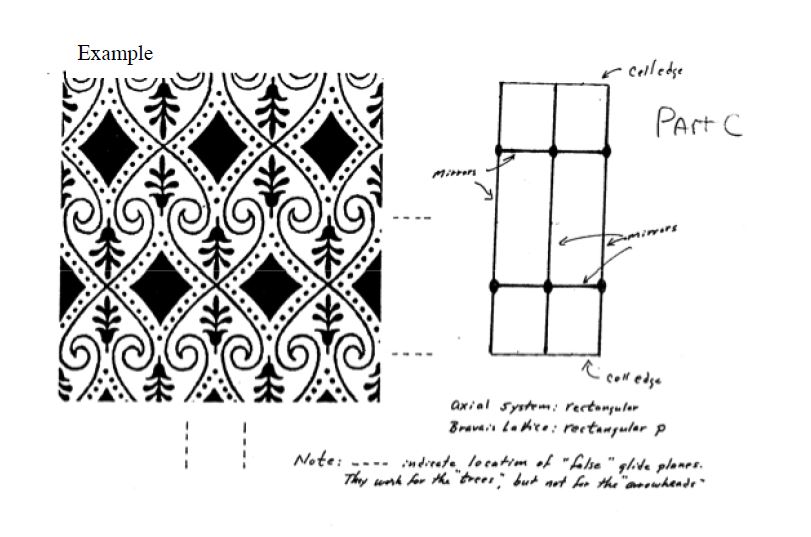 Example
cell edge
Part C
mirrors
mirrors
cell edge
axial system: rectangular
Bravais Lattice: rectangular p
Note: ---- indicate location of "false" glide planes.
They work for the "trees", but not for the "arrowheads"